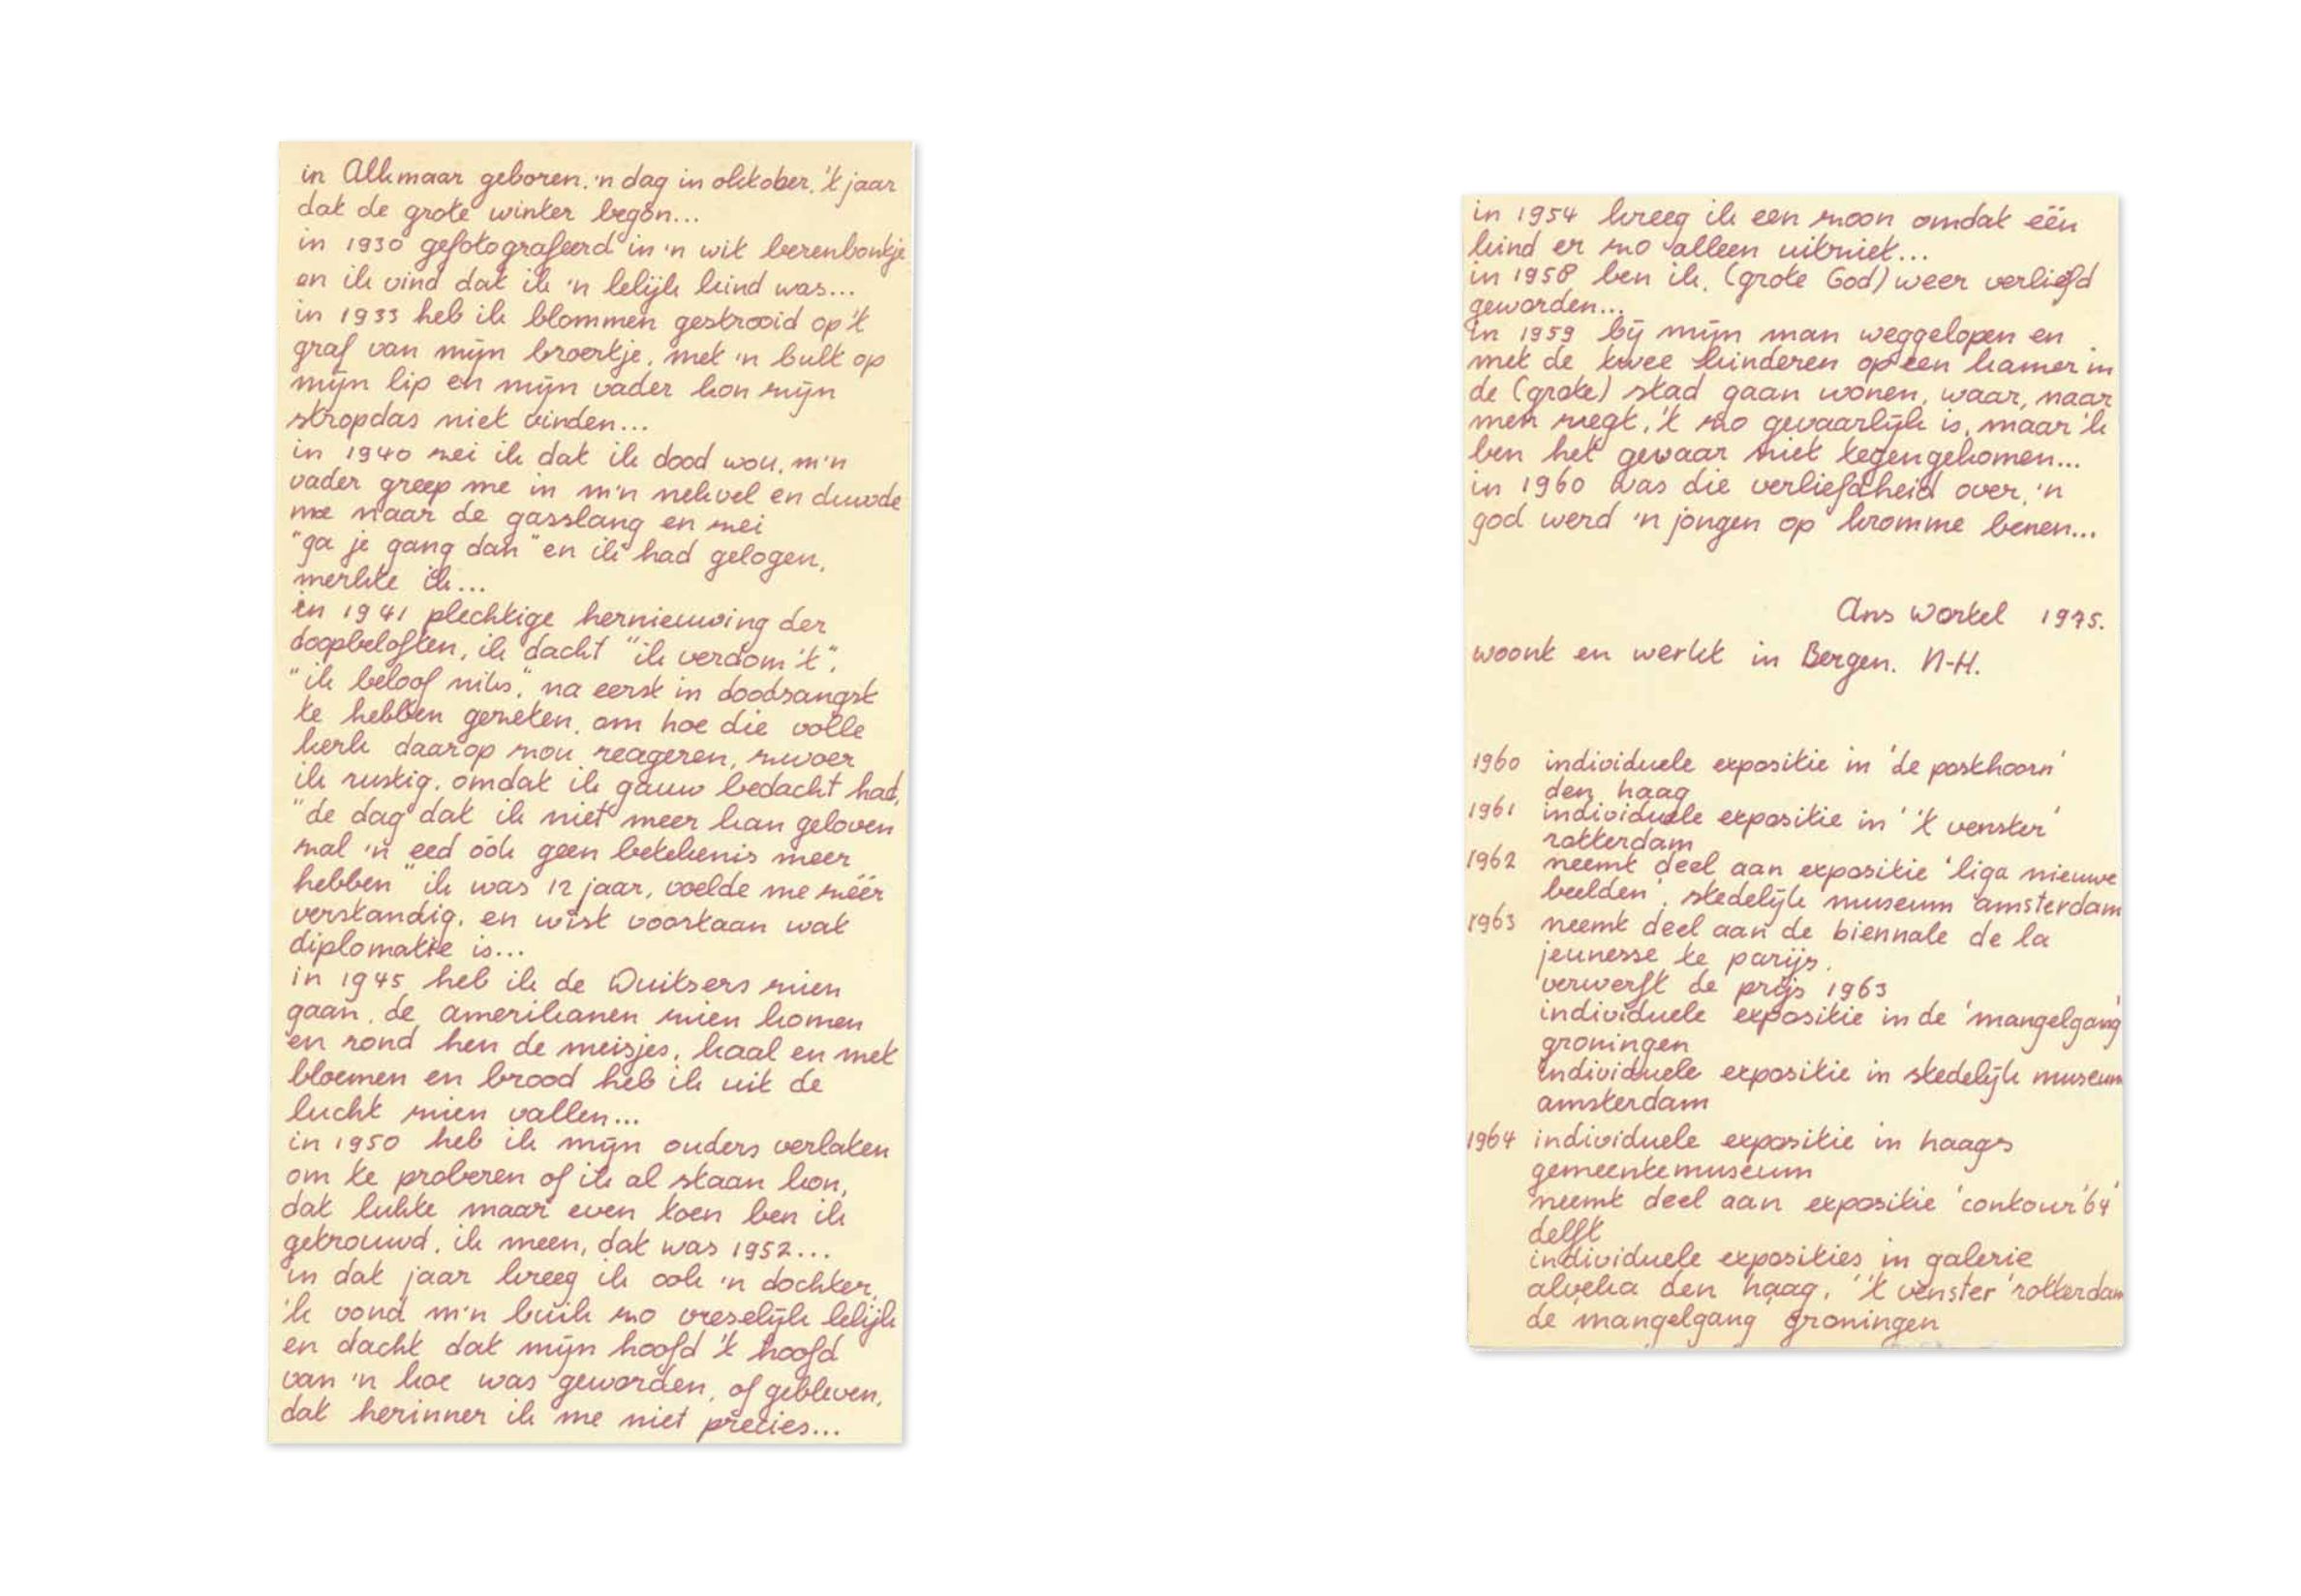 in Alkmaar geboren, 'n dag in oktober, 't jaar
dat de grote winter begon...
in 1930 gefotografeerd in 'n wit berenbontje
en ik vind dat ik 'n lelijk kind was...
in 1933 heb ik blommen gestrooid op 't
graf van mijn broertje, met 'n bult op
mijn lip en mijn vader kon zijn
stropdas niet vinden...
in 1940 zei ik dat ik dood wou, m'n
vader greep me in m'n nekvel en duwde
me naar de gasslang en zei
"ga je gang dan" en ik had gelogen,
merkte ik...
in 1941 plechtige hernieuwing der
doopbeloften, ik dacht "ik verdom 't",
"ik beloof niks," na eerst in doodsangst
te hebben gezeten, om hoe die volle
kerk daarop zou reageren, zwoer
ik rustig, omdat ik gauw bedacht had,
"de dag dat ik niet meer kan geloven
zal 'n eed óók geen betekenis meer
hebben" ik was 12 jaar, voelde me zéér
verstandig, en wist voortaan wat
diplomatie is...
in 1945 heb ik de Duitsers zien
gaan, de amerikanen zien komen
en rond hen de meisjes, kaal en met
bloemen en brood heb ik uit de
lucht zien vallen...
in 1950 heb ik mijn ouders verlaten
om te proberen of ik al staan kon,
dat lukte maar even toen ben ik
getrouwd, ik meen, dat was 1952...
in dat jaar kreeg ik ook 'n dochter,
'k vond m'n buik zo vreselijk lelijk
en dacht dat mijn hoofd 't hoofd
van 'n koe was geworden, of gebleven,
dat herinner ik me niet precies...
in 1954 kreeg ik een zoon omdat één
kind er zo alleen uitziet...
in 1958 ben ik, (grote God) weer verliefd
geworden...
in 1959 bij mijn man weggelopen en
met de twee kinderen op een kamer in
de (grote) stad gaan wonen, waar, naar
men zegt, 't zo gevaarlijk is, maar 'k
ben het gevaar niet tegengekomen...
in 1960 was die verliefdheid over, 'n
god werd 'n jongen op kromme benen...
Ans Wortel 1975.
woont en werkt in Bergen. N-H.
1960 individuele expositie in 'de posthoorn'
den haag
1961 individuele expositie in ' 't venster'
rotterdam
1962 neemt deel aan expositie 'liga nieuwe
beelden', stedelijk museum amsterdam
1963 neemt deel aan de biennale de la
jeunesse te parijs,
verwerft de prijs 1963
individuele expositie in de 'mangelgang'
groningen
individuele expositie in stedelijk museum
amsterdam
1964 individuele expositie in haags
gemeentemuseum
neemt deel aan expositie 'contour '64'
delft
individuele exposities in galerie
alveka den haag, ' 't venster' rotterdam
de mangelgang groningen